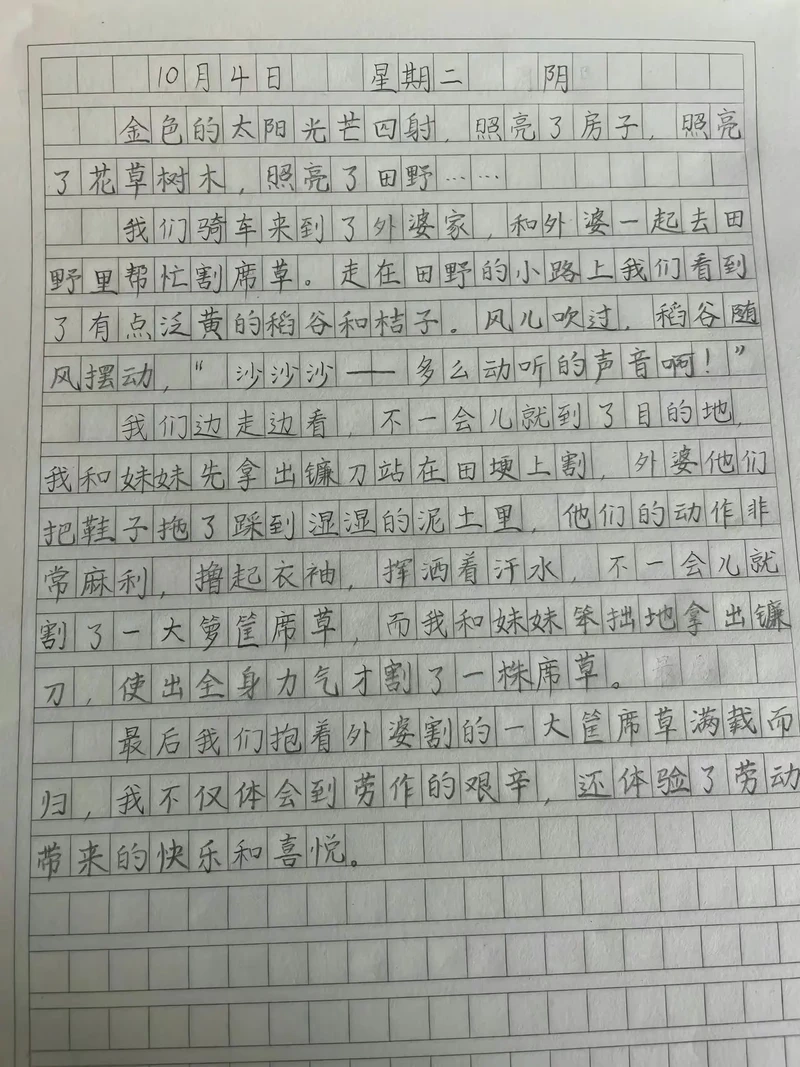 10月4日 星期二 阴
金色的太阳光芒四射，照亮了房子，照亮
了花草树木，照亮了田野……
我们骑车来到了外婆家，和外婆一起去田
野里帮忙割席草。走在田野的小路上我们看到
了有点泛黄的稻谷和桔子。风儿吹过，稻谷随
风摆动，“沙沙沙——多么动听的声音啊！”
我们边走边看，不一会儿就到了目的地，
我和妹妹先拿出镰刀站在田埂上割，外婆他们
把鞋子拖了踩到湿湿的泥土里，他们的动作非
常麻利，撸起衣袖，挥洒着汗水，不一会儿就
割了一大箩筐席草，而我和妹妹笨拙地拿出镰
刀，使出全身力气才割了一株席草。
最后我们抱着外婆割的一大筐席草满载而
归，我不仅体会到劳作的艰辛，还体验了劳动
带来的快乐和喜悦。